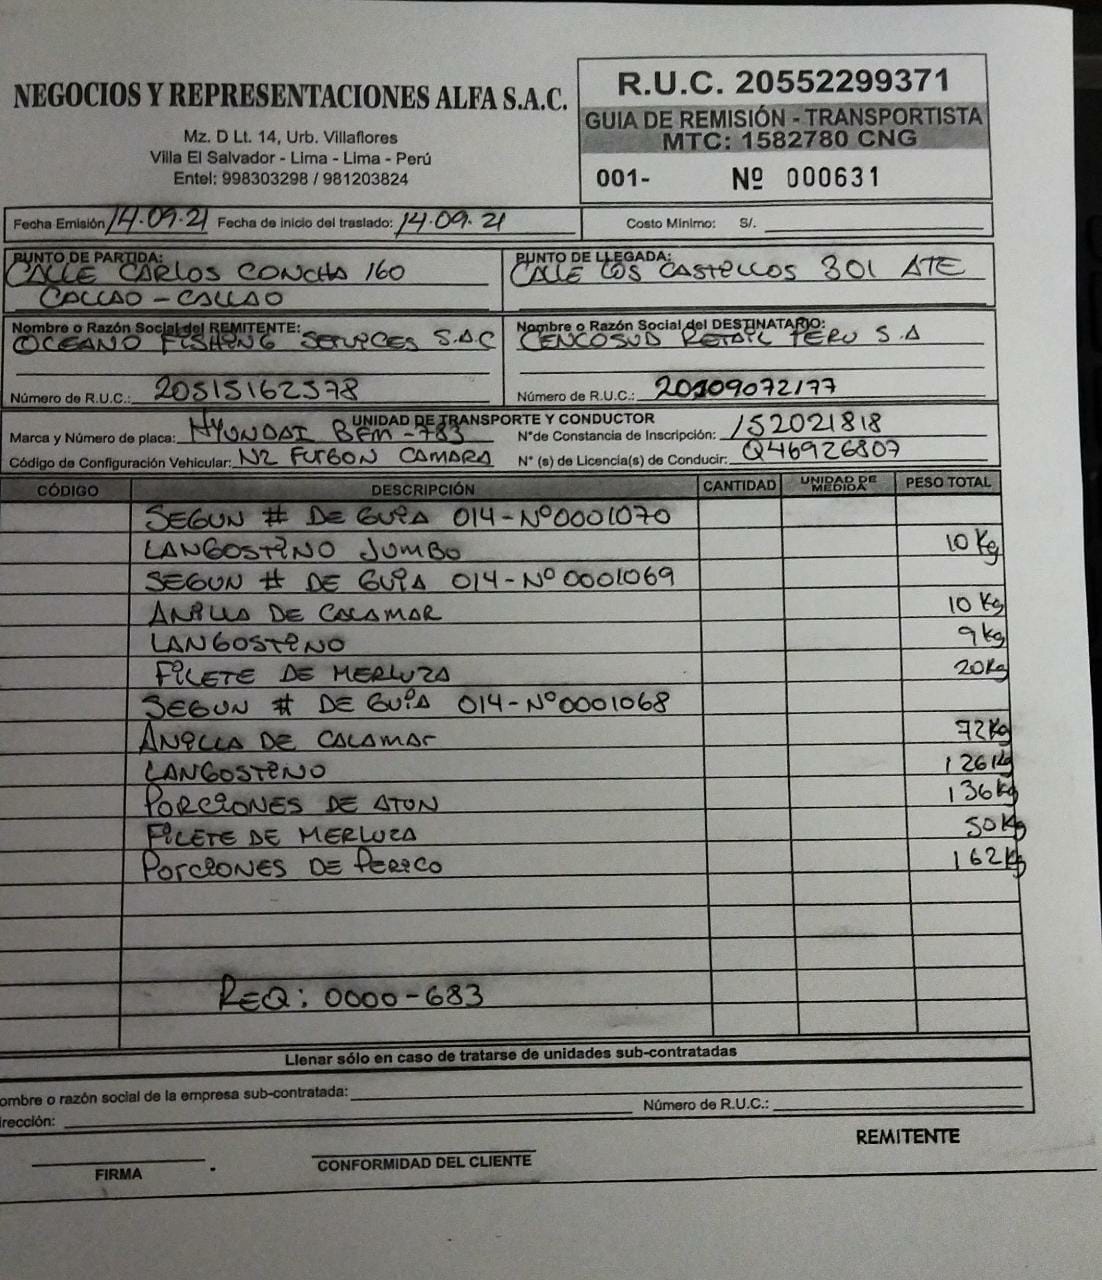 NEGOCIOS Y REPRESENTACIONES ALFA S.A.C.
Mz. D Lt. 14, Urb. Villaflores
Villa El Salvador - Lima - Lima - Perú
Entel: 998303298 / 981203824
R.U.C. 20552299371
GUIA DE REMISIÓN - TRANSPORTISTA
MTC: 1582780 CNG
001- Nº 000631
Fecha Emisión 14.09.21 Fecha de inicio del traslado: 14.09.21
Costo Minimo: S/.
PUNTO DE PARTIDA:
CALLE CARLOS CONCHA 160
CALLAO - CALLAO
PUNTO DE LLEGADA:
CALLE LOS CASTELLOS 301 ATE
Nombre o Razón Social del REMITENTE:
OCEANO FISHING SERVICES S.A.C
Número de R.U.C.: 20515162578
Nombre o Razón Social del DESTINATARIO:
CENCOSUD RETAIL PERU S.A
Número de R.U.C.: 20109072177
UNIDAD DE TRANSPORTE Y CONDUCTOR
Marca y Número de placa: HYUNDAI BFM-783
N°de Constancia de Inscripción: 152021818
Código de Configuración Vehicular: N2 FURGON CAMARA
N° (s) de Licencia(s) de Conducir: Q46926807
CÓDIGO DESCRIPCIÓN CANTIDAD UNIDAD DE MEDIDA PESO TOTAL
SEGUN # DE GUIA 014-Nº0001070
LANGOSTINO JUMBO 10 Kg
SEGUN # DE GUIA 014-Nº0001069
ANILLA DE CALAMAR 10 Kg
LANGOSTINO 9 Kg
FILETE DE MERLUZA 20Kg
SEGUN # DE GUIA 014-Nº0001068
ANILLA DE CALAMAR 72Kg
LANGOSTINO 126Kg
PORCIONES DE ATUN 136Kg
FILETE DE MERLUZA 50Kg
PORCIONES DE PERICO 162Kg
REQ: 0000-683
Llenar sólo en caso de tratarse de unidades sub-contratadas
ombre o razón social de la empresa sub-contratada:
irección:
Número de R.U.C.:
FIRMA
CONFORMIDAD DEL CLIENTE
REMITENTE